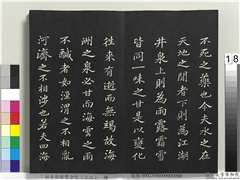 不死之藥也今夫水之在
天地之間者下則爲江湖
井泉上則爲雨露霜雪
皆同一味之甘是以變化
往來有逝而無竭故海
洲之泉必甘而海雲之雨
不鹹者如涇渭之不相亂
河濟之不相涉也若夫四海